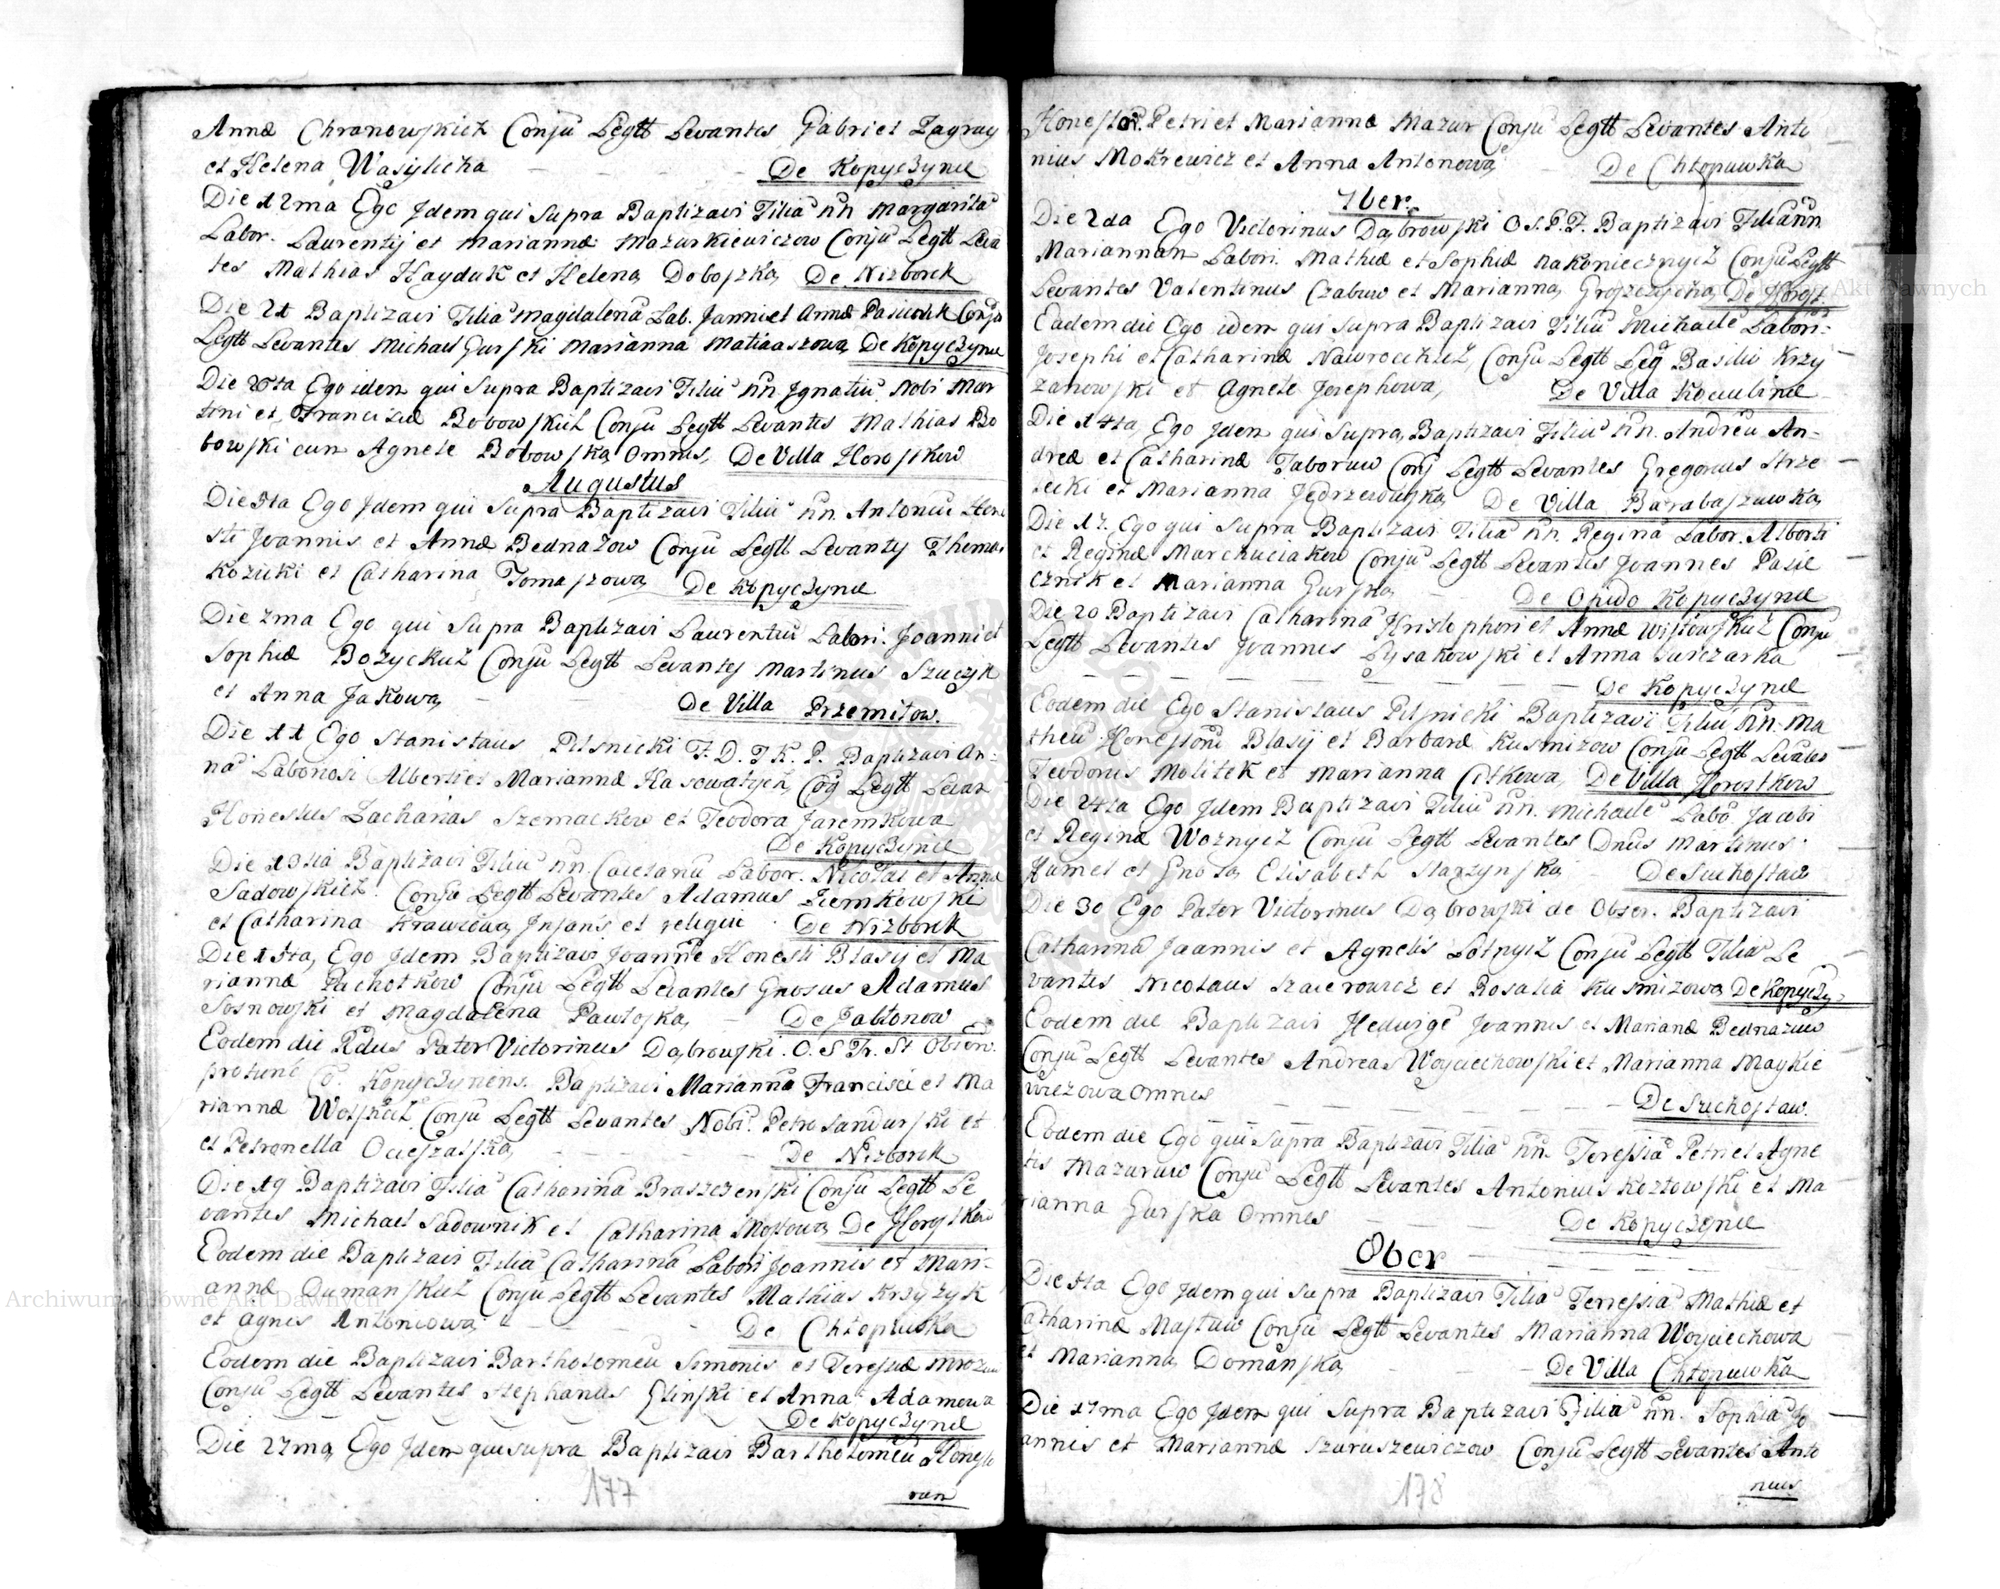 Annæ Chranowskich Conju Legtt Levantes Gabriel Zagray
et Helena Wasylicha De Kopyczynce
Die 12ma Ego Idem qui Supra Baptizavi Filia nn Margarita
Labor. Laurentij et Mariannæ Mazurkiewiczow Conju Legtt Leva
tes Mathias Hayduk et Helena Doboszka De Nizborek
Die 21 Baptizavi Filia Magdalena Lab. Janni et Annæ Conju
Legtt Levantes Michael Gurski Marianna Matiaszowa De Kopyczynce
Die 26ta Ego idem qui Supra Baptizavi Filiu nn Ignatiu Nobi Mar
tini et Franciscæ Bobowskich Conju Legtt Levantes Mathias Bo
bowski cum Agnete Bobowska Omnes, De Villa Horostkow
Augustus
Die 5ta Ego Idem qui Supra Baptizavi Filiu nn. Antoniu Hone
sti Joannis et Annæ Bednazow Conju Legtt Levantes Thomas
Kozicki et Catharina Tomaszowa De Kopyczynce
Die 7ma Ego qui Supra Baptizavi Laurentiu Labori. Joanni et
Sophiæ Bozyckich Conju Legtt Levantes Martinus Szuczyk
et Anna Jakowa De Villa Przemilow.
Die 11 Ego Stanislaus Pilsnicki F. D. J K. P. Baptizavi An:
na Laboriosi Alberti et Mariannæ Kasowatych, Coj Legtt Levan
Honestus Zacharias Szemackow et Teodora Jaremkowa
De Kopyczynce
Die 13tia Baptizavi Filiu nn Caietanu Labor. Nicolai et Annæ
Sadowskich. Conju Legtt Levantes Adamus Ziemkowski
et Catharina Krawcowa Infans et religui De Nizborek
Die 15ta, Ego Idem Baptizavi Joanne Honesti Blasij et Ma
riannæ Pachotkow Conju Legtt Levantes Gnosus Adamus
Sosnowski et Magdalena Pawloska, De Jablonow
Eodem die Rdus Pater Victorinus Dąbrowski. O. S Fr. St Obserw.
protunc Kopyczynens. Baptizavi Marianna Francisci et Ma
riannæ Wolskich Conju Legtt Levantes Nobi. Petro Sandurski et
et Petronella Ocieszalska, De Nizborek
Die 19 Baptizavi Filia Catharina Braszczenski Conju Legtt Le
vantes Michael Sadownik et Catharina Mossowa De Horostkow
Eodem die Baptizavi Filia Catharina Labori Joannis et Mari-
annæ Dumanskich Conju Legtt Levantes Mathias Krzyzyk
et Agnes Antoniowa De Chłopiwka
Eodem die Baptizavi Bartholomeu Simonis et Teressiæ Mrozow
Conju Legtt Levantes Stephanus Glinski et Anna Adamowa
De Kopyczynce
Die 27ma, Ego Idem qui supra Baptizavi Bartholomeu Honesto
rum
177
Honestor. Petri et Mariannæ Mazur Conju Legtt Levantes Anto
nius Mokrewicz et Anna Antonowa De Chłopuwka
7ber.
Die 2da Ego Victorinus Dąbrowski O S. P. F. Baptizavi Filiam nn
Mariannam Labori. Mathiæ et Sophiæ Nakoniecznych Conju Legtt
Levantes Valentinus Czabuw et Marianna De Horost.
Eadem die Ego idem qui Supra Baptizavi Filiu Michaele Labori:
Josephi et Catharinæ Nawrockich, Conju Legtt Leg Basilio Krzy
zanowski et Agnete Josephowa, De Villa Kociubince
Die 14ta Ego Idem qui Supra, Baptizavi Filiu nn. Andreu An-
dreæ et Catharinæ Taboruw Conj Legtt Levantes Gregorius Strze
lecki et Marianna Jędrzeiowska De Villa Barabaszuwka,
Die 17. Ego qui Supra Baptizavi Filia nn. Regina Labor. Alberti
et Reginæ Marchuciakow Conju Legtt Levantes Joannes Pasie
cznik et Marianna Gurska, De Opido Kopyczynce
Die 20 Baptizavi Catharina Hristophori et Annæ Wislowskich Conju
Legtt Levantes Joannes Lysakowski et Anna
De Kopyczynce
Eodem die Ego Stanislaus Pilsnicki Baptizavi Filiu nn. Ma
theu Honestoru Blasij et Barbaræ Kusmizow Conju Legtt Levates
Teodorus Molitek et Marianna Citkowa, De Villa Horostkow
Die 24ta Ego Idem Baptizavi Filiu nn. Michaele Labo. Jacobi
et Reginæ Woznych Conju Legtt Levantes Dnus Martinus
Humel et Gnosa Elisabeth Starzynska De Suchostaw
Die 30 Ego Pater Victorinus Dąbrowski de Obser. Baptizavi
Catharina Joannis et Agnetis Lotnych Conju Legtt Filia Le
vantes Nicolaus et Rosalia Kusmizowa De Kopyczy-
Eodem die Baptizavi Hedwige Joannis et Marianæ Bednazuw
Conju Legtt Levantes Andreas Woyciechowski et Marianna Maykie
wiezowa Omnes
De Suchostaw.
Eodem die Ego qui Supra Baptizavi Filia nn. Teressia Petri et Agne
tis Mazuruw Conju Legtt Levantes Antonius Kozlowski et Ma
rianna Gurska Omnes De Kopyczynce
8ber
Die 5ta Ego Idem qui Supra Baptizavi Filia Terressia Mathiæ et
Catharinæ Mastuw Conju Legtt Levantes Marianna Woyciechowa
et Marianna Domanska, De Villa Chłopuwka
Die 17ma Ego Idem qui Supra Baptizavi Filia nn. Sophia Jo
annis et Mariannæ Szaruszewiczow Conju Legtt Levantes Anto
nius
178
Archiwum Główne Akt Dawnych